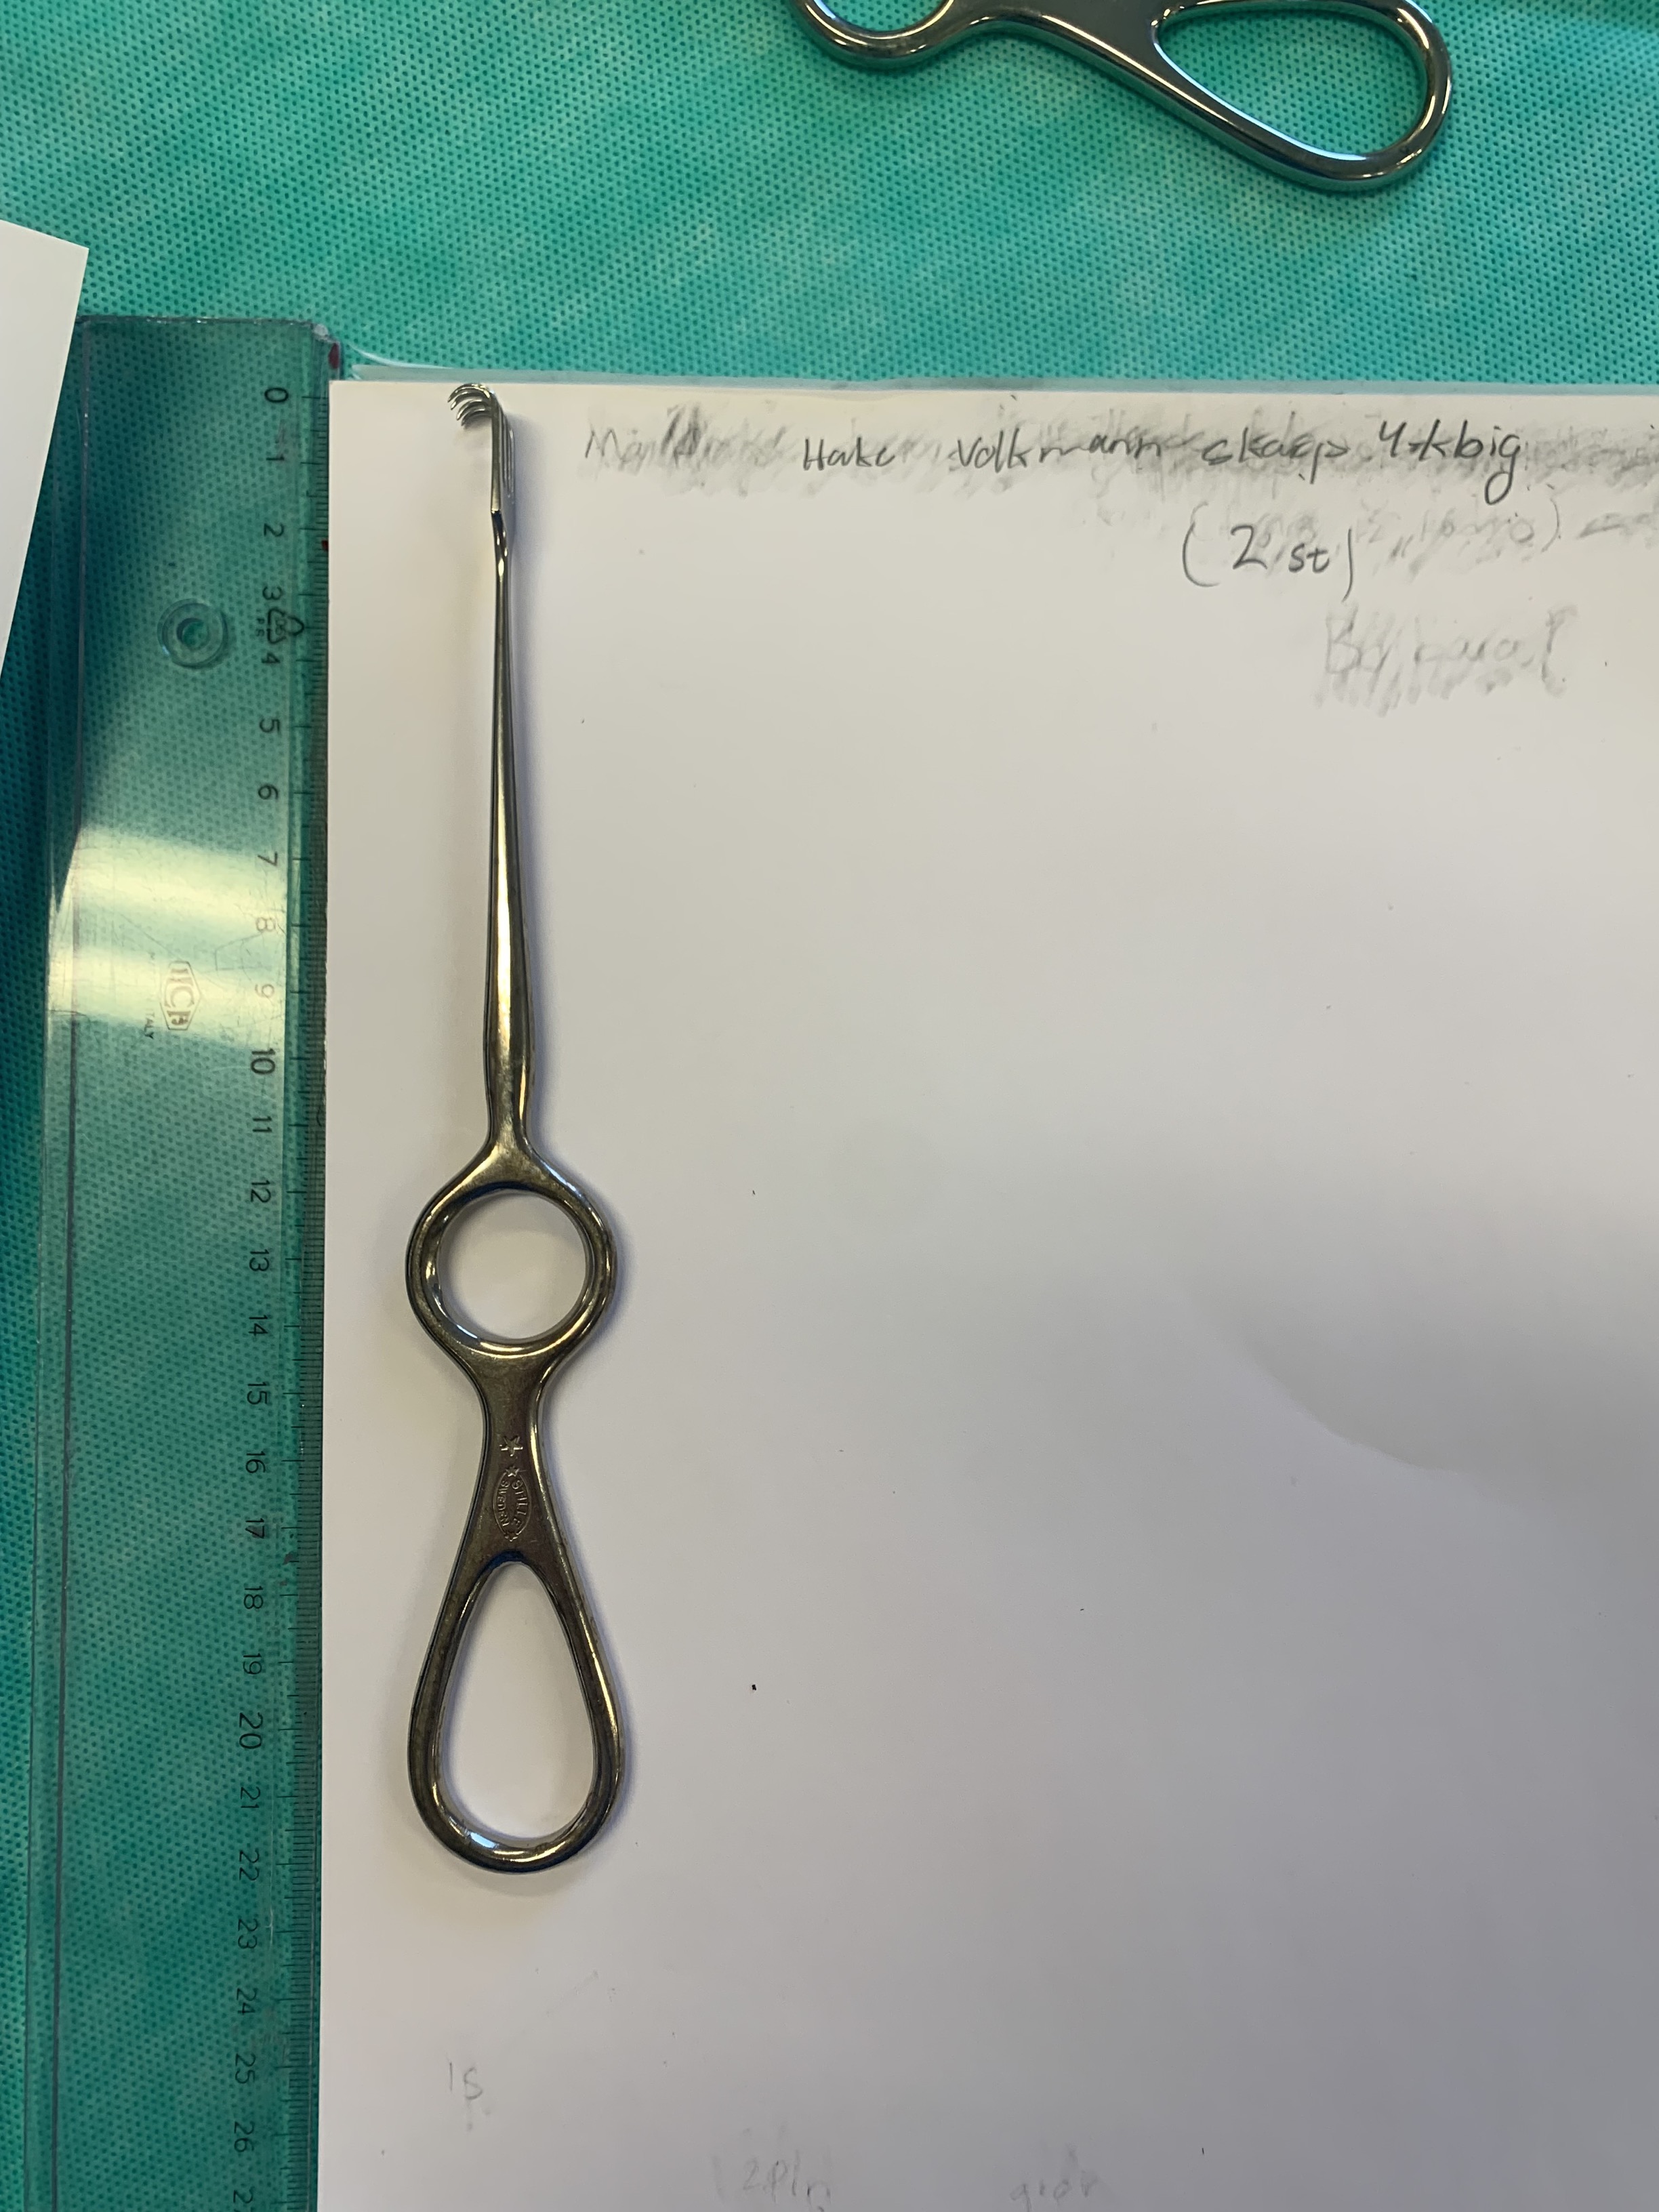 Hake Volkmann skarp 4-kbig
(2 st)
0
1
2
3
4
5
6
7
8
9
10
11
12
13
14
15
16
17
18
19
20
21
22
23
24
25
26
ITALY
STILLE
SWEDEN